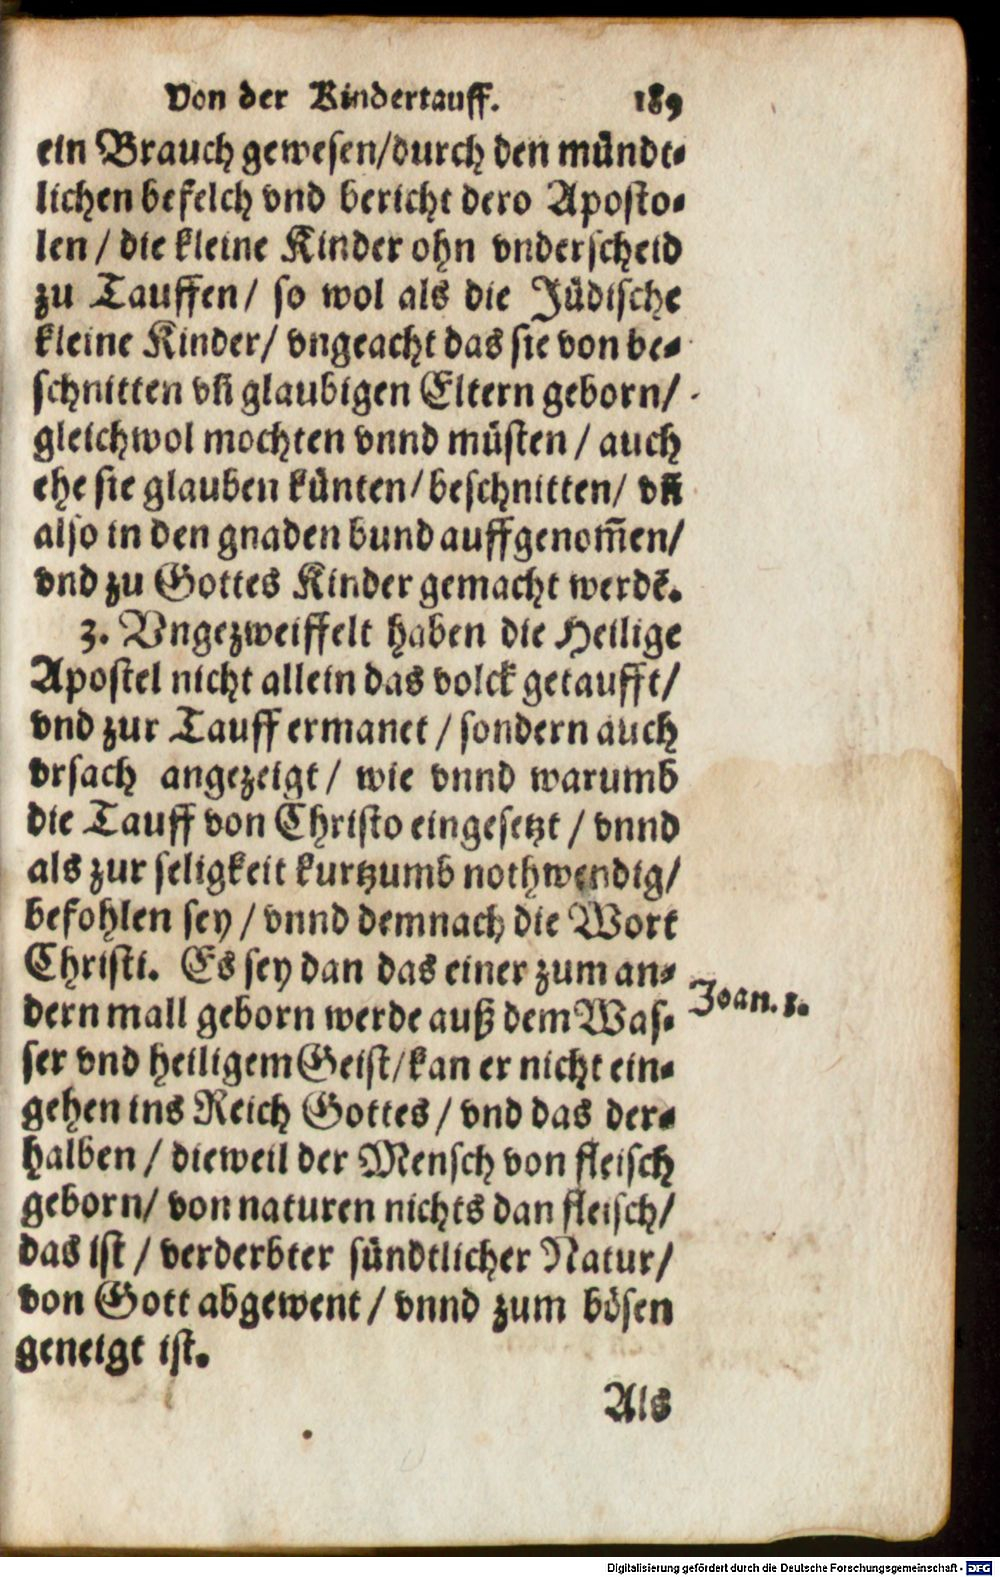 Von der Kindertauff. 189
ein Brauch gewesen/durch den mündt-
lichen befelch vnd bericht dero Aposto-
len / die kleine Kinder ohn vnderscheid
zu Tauffen/ so wol als die Jüdische
kleine Kinder/ vngeacht das sie von be-
schnitten vñ glaubigen Eltern geborn/
gleichwol mochten vnnd müsten / auch
ehe sie glauben künten/ beschnitten/ vñ
also in den gnaden bund auffgenom̃en/
vnd zu Gottes Kinder gemacht werdẽ.
3. Vngezweiffelt haben die Heilige
Apostel nicht allein das volck getaufft/
vnd zur Tauff ermanet / sondern auch
vrsach angezeigt / wie vnnd warumb
die Tauff von Christo eingesetzt / vnnd
als zur seligkeit kurtzumb nothwendig/
befohlen sey / vnnd demnach die Wort
Christi. Es sey dan das einer zum an-
dern mall geborn werde auß dem Was-
Joan. 3.
ser vnd heiligem Geist/kan er nicht ein-
gehen ins Reich Gottes / vnd das der-
halben / dieweil der Mensch von fleisch
geborn/ von naturen nichts dan fleisch/
das ist / verderbter sündtlicher Natur/
von Gott abgewent / vnnd zum bösen
geneigt ist.
Als
Digitalisierung gefördert durch die Deutsche Forschungsgemeinschaft - DFG